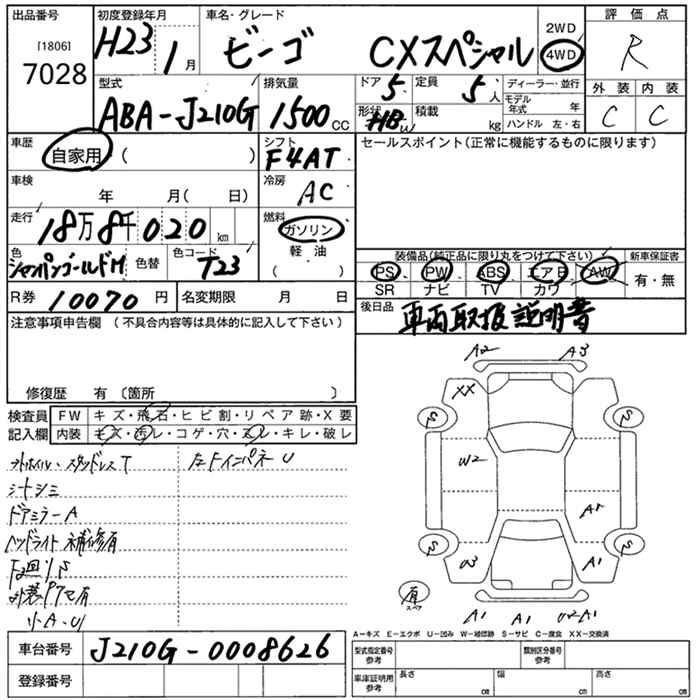 出品番号 初度登録年月 車名・グレード 2WD 評価点
[1806] H23 1月 ビーゴ CXスペシャル 4WD R
7028
型式 排気量 ドア 5 定員 5人 ディーラー・並行 外装 内装
ABA-J210G 1500cc 形状 HB 積載 kg モデル年式 年 C C
ハンドル 左・右
車歴 自家用 ( ) シフト F4AT セールスポイント(正常に機能するものに限ります)
車検 年 月( 日) 冷房 AC
走行 18万8千020km 燃料 ガソリン
軽・油
( )
色 シャンパンゴールドM 色替 色コード T23 装備品(純正品に限り丸をつけて下さい) 新車保証書
PS PW ABS エアB AW 有・無
SR ナビ TV カワ
R券 10070円 名変期限 月 日 後日品 車両取扱説明書
注意事項申告欄 (不具合内容等は具体的に記入して下さい)
修復歴 有 〔箇所 〕
検査員 FW キズ・飛石・ヒビ割・リペア跡・X要
記入欄 内装 キズ・汚レ・コゲ・穴・スレ・キレ・破レ
スタッドレスT
シミ
ドアミラーA
ヘッドライト補修有
下回りS
小A・U
A2 A3
XX
S S
W2
A1
S S
U3 A1
有
スペア
A1 A1 U2A1
A-キズ E-エクボ U-凹み W-補修跡 S-サビ C-腐食 XX-交換済
車台番号 J210G-0008626 型式指定番号 参考 類別区分番号 参考
登録番号 車庫証明用 参考 長さ cm 幅 cm 高さ cm